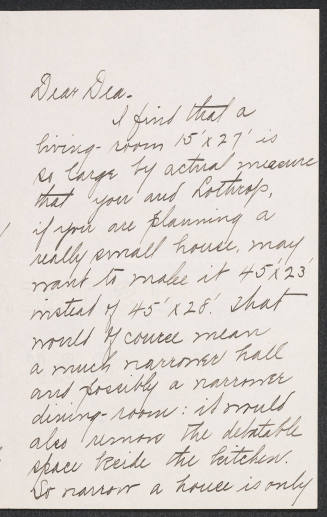 Dear Dea-
I find that a
living-room 15' x 27' is
so large by actual measure
that you and Lothrop,
if you are planning a
really small house, may
want to make it 45' x 23'
instead of 45' x 28'. That
would of course mean
a much narrower hall
and possibly a narrower
dining-room: it would
also remove the debatable
space beside the kitchen.
So narrow a house is only